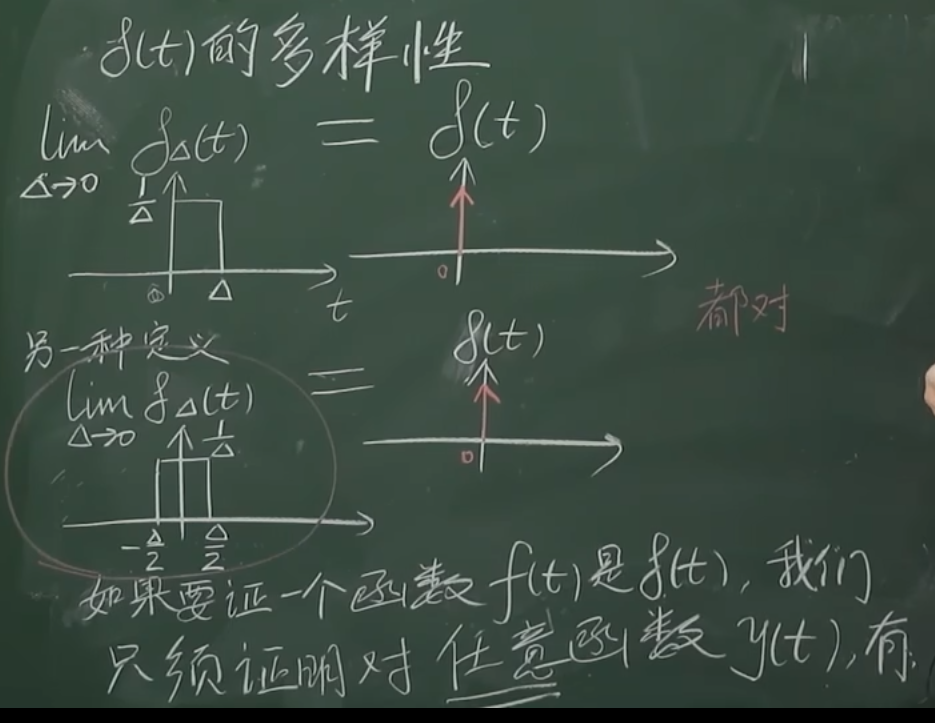 δ(t)的多样性
lim δΔ(t) = δ(t)
Δ→0
1/Δ
0 Δ t
0
都对
另一种定义
lim δΔ(t) = δ(t)
Δ→0
1/Δ
0
-Δ/2 Δ/2
如果要证一个函数f(t)是δ(t),我们
只须证明对任意函数y(t),有